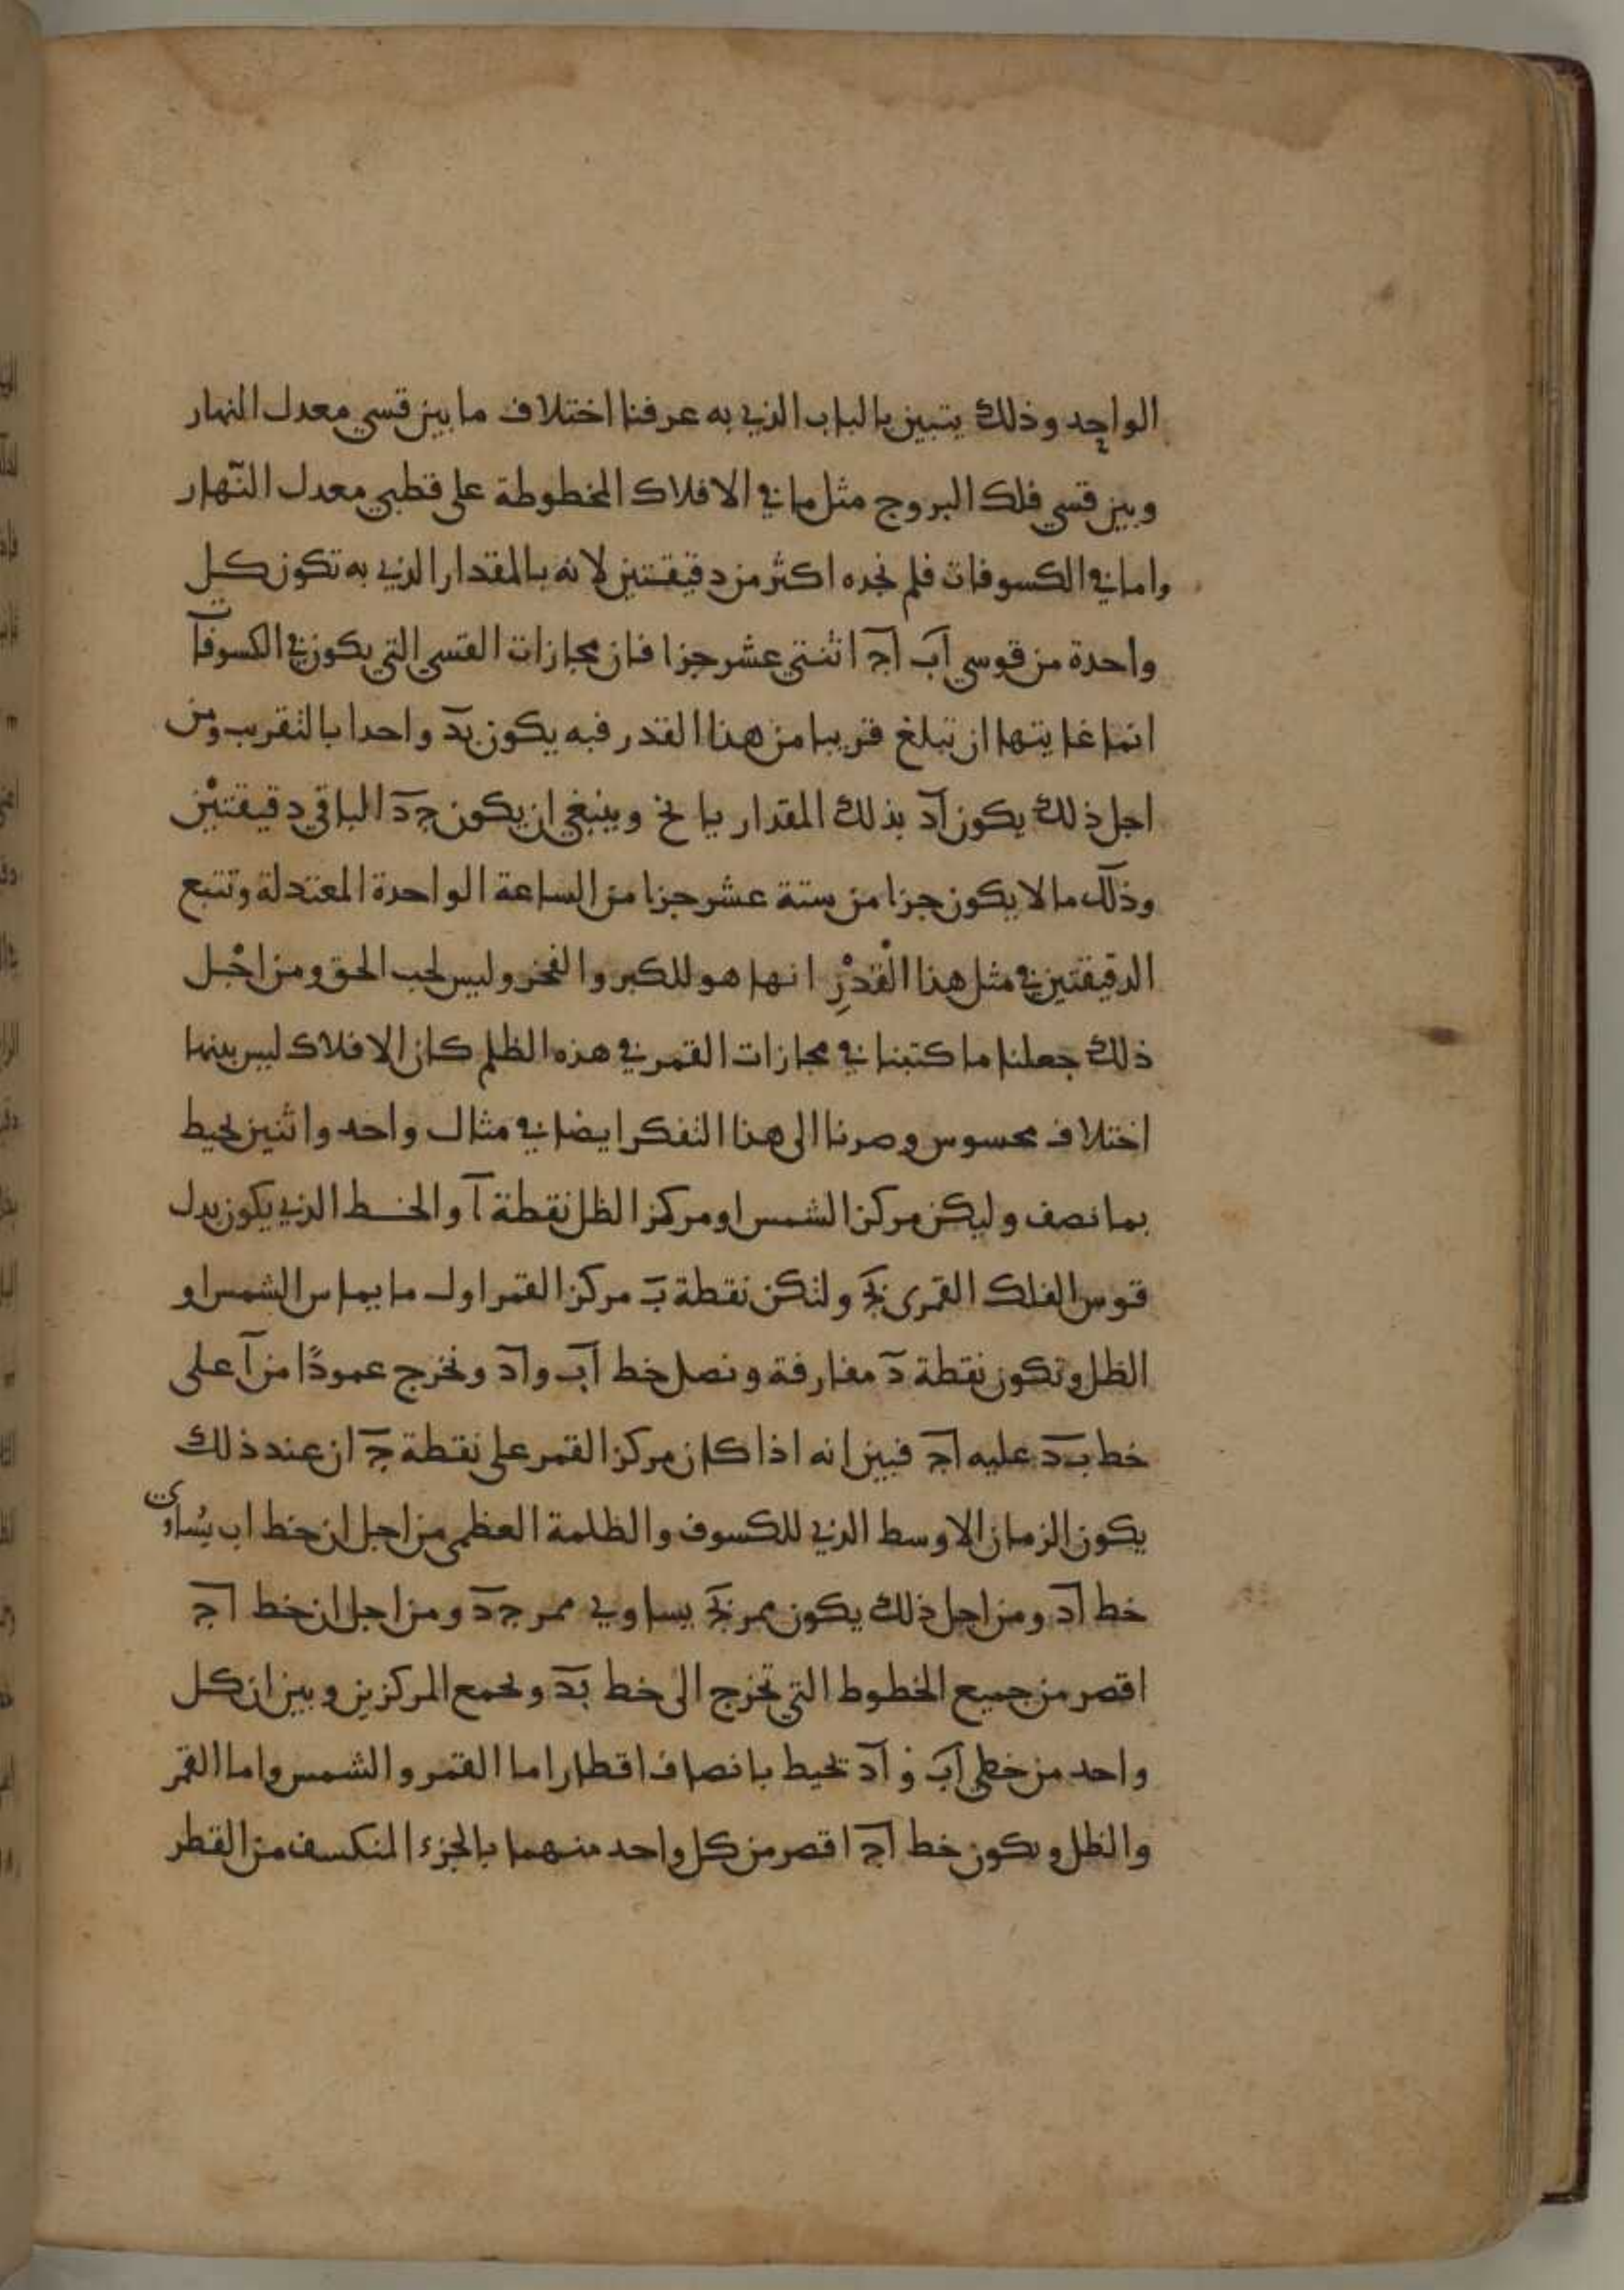 الواحد وذلك يتبين بالباب الذي به عرفنا اختلاف ما بين قسي معدل النهار
وبين قسي فلك البروج مثل ما في الافلاك المخطوطة على قطبي معدل النّهار
واما في الكسوفات فلم نجده اكثر من دقيقتين لانه بالمقدار الذي به تكون كل
واحدة من قوسي اَب اَج اثنتي عشر جزا فان مجازات القسي التي يكون في الكسوفات
انما غايتها ان تبلغ قريبا من هذا القدر فبه يكون بَد واحدا بالتقريب ومن
اجل ذلك يكون اَد بذلك المقدار يا نح وينبغي ان يكون جَد الباقي دقيقتيْن
وذلك ما لا يكون جزا من ستة عشر جزا من الساعة الواحدة المعتدلة وتتبع
الدقيقتين في مثل هذا القْدرِ انها هو للكبر والفخر وليس لحب الحق ومن اجْل
ذلك جعلنا ما كتبنا في مجازات القمر في هذه الظلم كان الافلاك ليس بينها
اختلاف محسوس وصرنا الى هذا التفكر ايضا في مثال واحد واثنين لحيط
بما نصف وليكن مركز الشمس او مركز الظل نقطة آ والخط الذي يكون بدل
قوس الفلك القمرى بَج ولتكن نقطة بَ مركز القمر اول ما يماس الشمس او
الظل وتكون نقطة دَ مفارقة ونصل خط اَب واَد ونخرج عمودًا من آ على
خط بَد عليه اَج فبين انه اذا كان مركز القمر على نقطة جَ ان عند ذلك
يكون الزمان الاوسط الذي للكسوف والظلمة العظمى من اجل ان خط اب يُساوى
خط اَد ومن اجل ذلك يكون ممر بَج يساوي ممر جَد ومن اجل ان خط اَج
اقصر من جميع الخطوط التي تخرج الى خط بَد وتجمع المركزين وبين ان كل
واحد من خطي اَب وَ اَد تحيط بانصاف اقطار اما القمر والشمس واما القمر
والظل ويكون خط اَج اقصر من كل واحد منهما بالجزء المنكسف من القطر